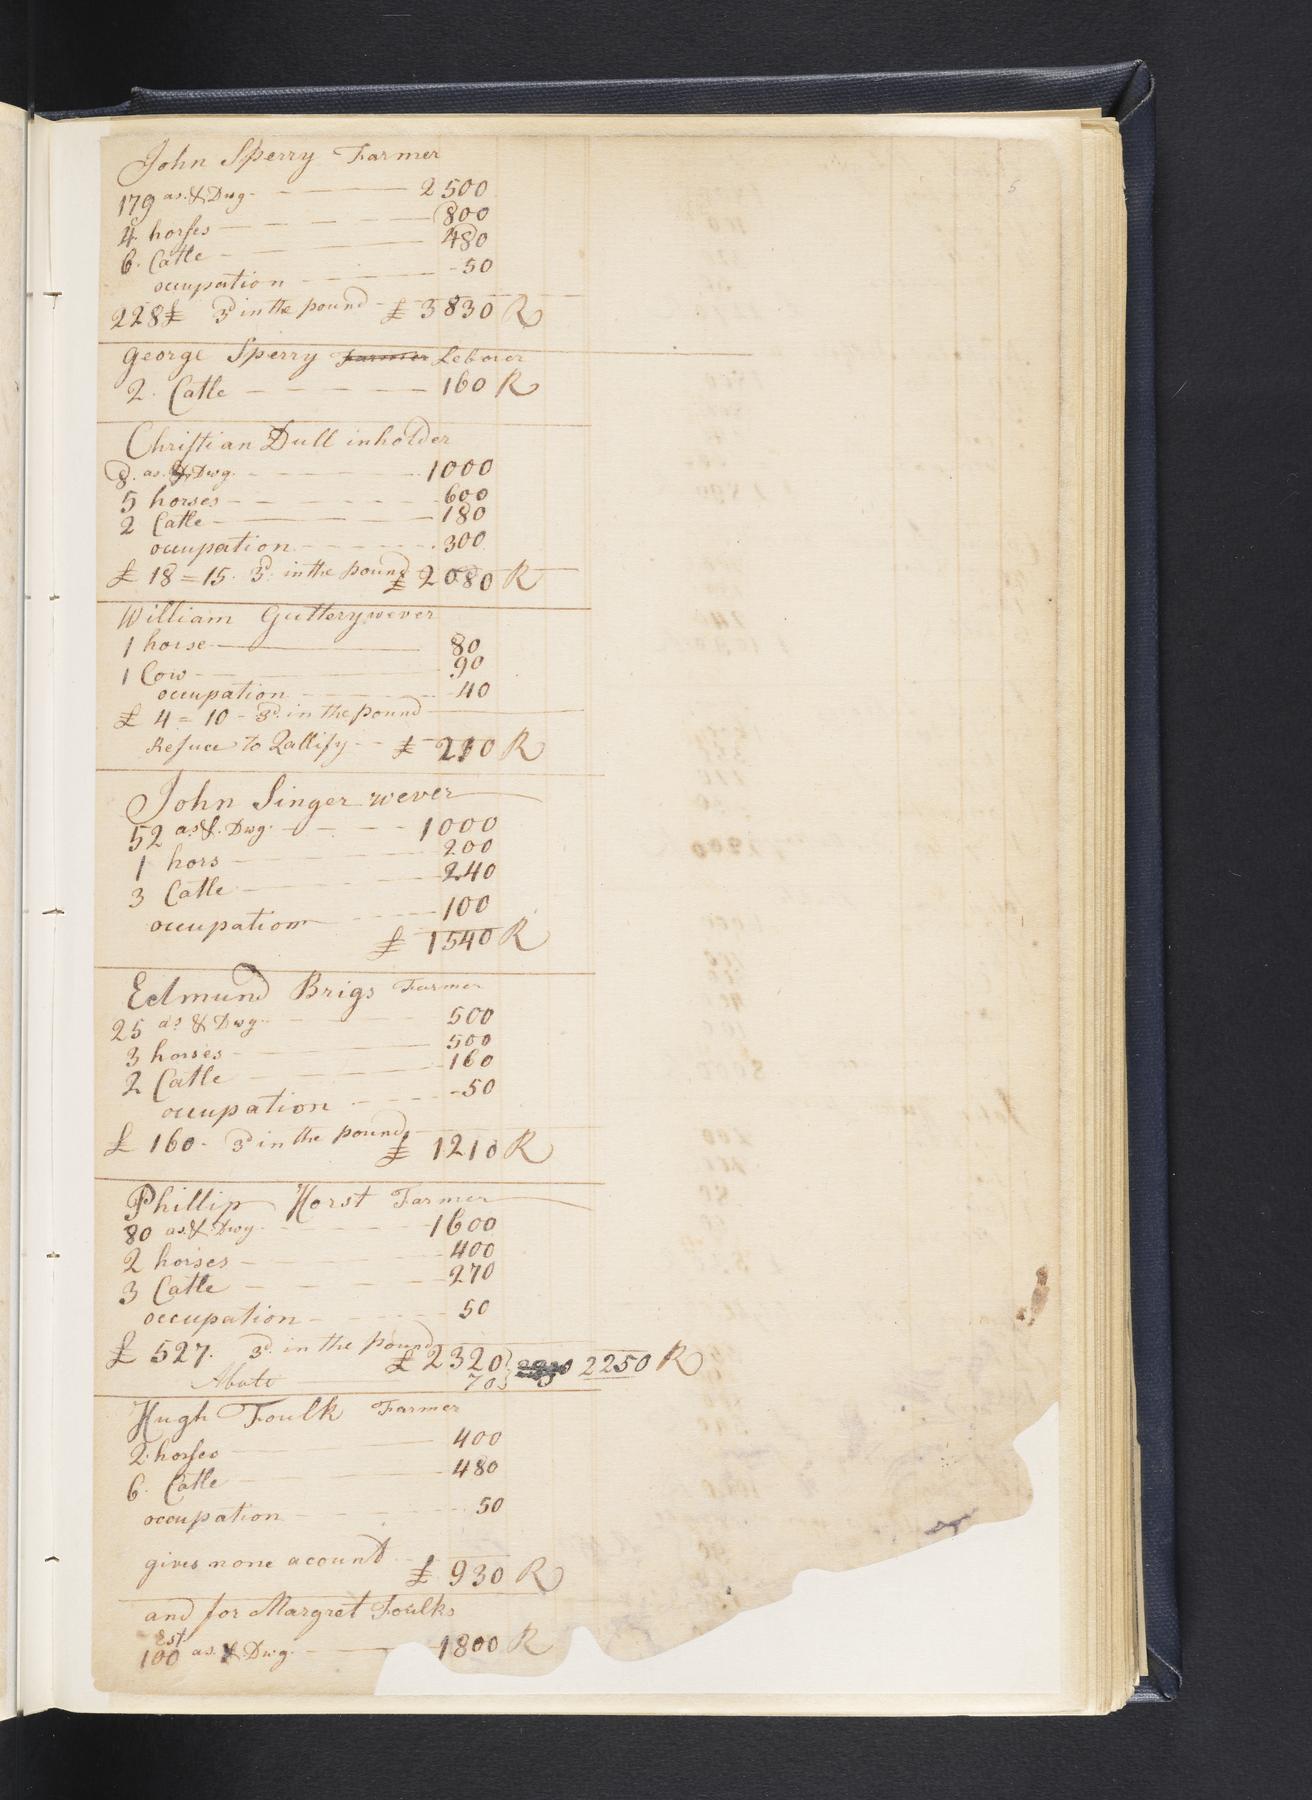 5
John Sperry Farmer
179 as. & Dwg. 2500
4 horses 800
6. Catle 480
occupation 50
228£ 3d in the pound £ 3830 R
George Sperry Farmer Leborer
2. Catle 160 R
Christian Dull inholder
8. as. & Dwg. 1000
5 horses 600
2 Catle 180
occupation 300
£ 18=15. 3d. in the pound £ 2080 R
William Guttery wever
1 horse 80
1 Cow 90
occupation 40
£ 4=10- 3d. in the pound
Refuce to Qallify £ 210 R
John Singer wever
52 as. & Dwg. 1000
1 hors 200
3 Catle 240
occupation 100
£ 1540 R
Edmund Brigs Farmer
25 as & Dwg. 500
3 horses 500
2 Catle 160
occupation 50
£ 160- 3d in the pound £ 1210 R
Phillip Horst Farmer
80 as. & Dwg. 1600
2 horses 400
3 Catle 270
occupation 50
£ 527. 3d. in the pound £ 2320 2250 R
Abate 70
Hugh Foulk Farmer
2. horses 400
6. Catle 480
occupation 50
gives none acount £ 930 R
and for Margret Foulks
Est
100 as. & Dwg. 1800 R